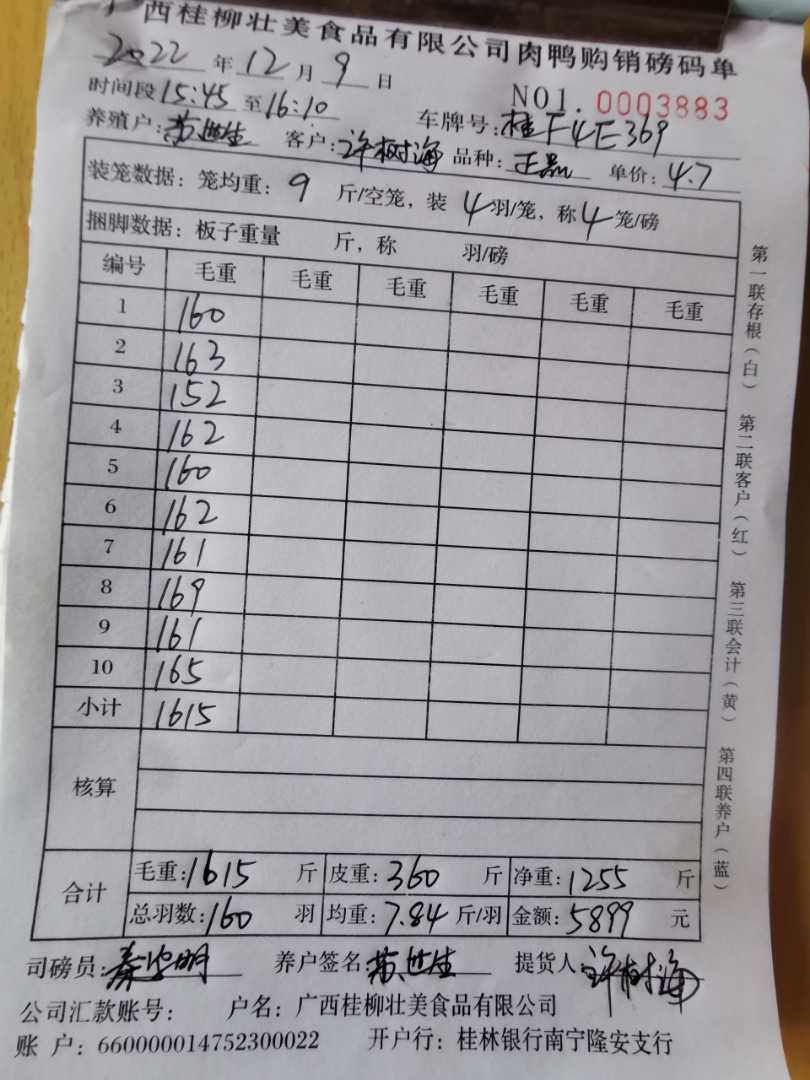 西桂柳壮美食品有限公司肉鸭购销磅码单
2022 年 12 月 9 日
时间段 15:45 至 16:10 NO1. 0003883
养殖户: 苏世生 客户: 许树海 车牌号: 桂F4E369
品种: 正品 单价: 4.7
装笼数据: 笼均重: 9 斤/空笼, 装 4 羽/笼, 称 4 笼/磅
捆脚数据: 板子重量 斤, 称 羽/磅
编号 毛重 毛重 毛重 毛重 毛重 毛重
1 160
2 163
3 152
4 162
5 160
6 162
7 161
8 169
9 161
10 165
小计 1615
核算
合计 毛重: 1615 斤 皮重: 360 斤 净重: 1255 斤
总羽数: 160 羽 均重: 7.84 斤/羽 金额: 5899 元
司磅员: 养户签名: 苏世生 提货人: 许树海
公司汇款账号: 户名: 广西桂柳壮美食品有限公司
账 户: 660000014752300022 开户行: 桂林银行南宁隆安支行
第一联存根(白) 第二联客户(红) 第三联会计(黄) 第四联养户(蓝)